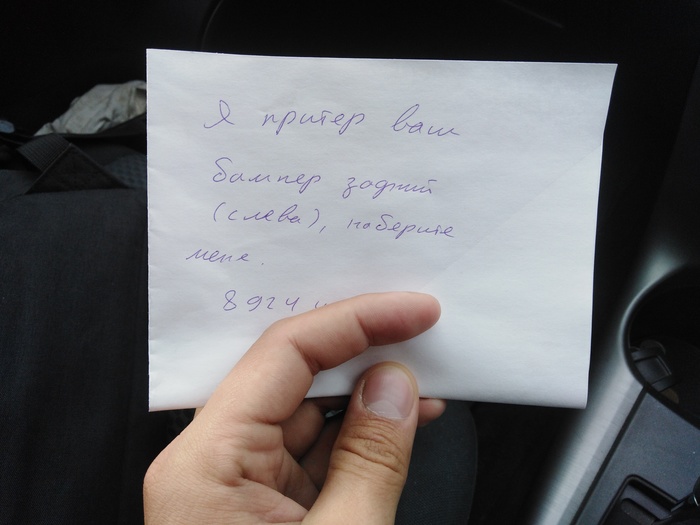 Я притер ваш
бампер задний
(слева), наберите
мене.
8924